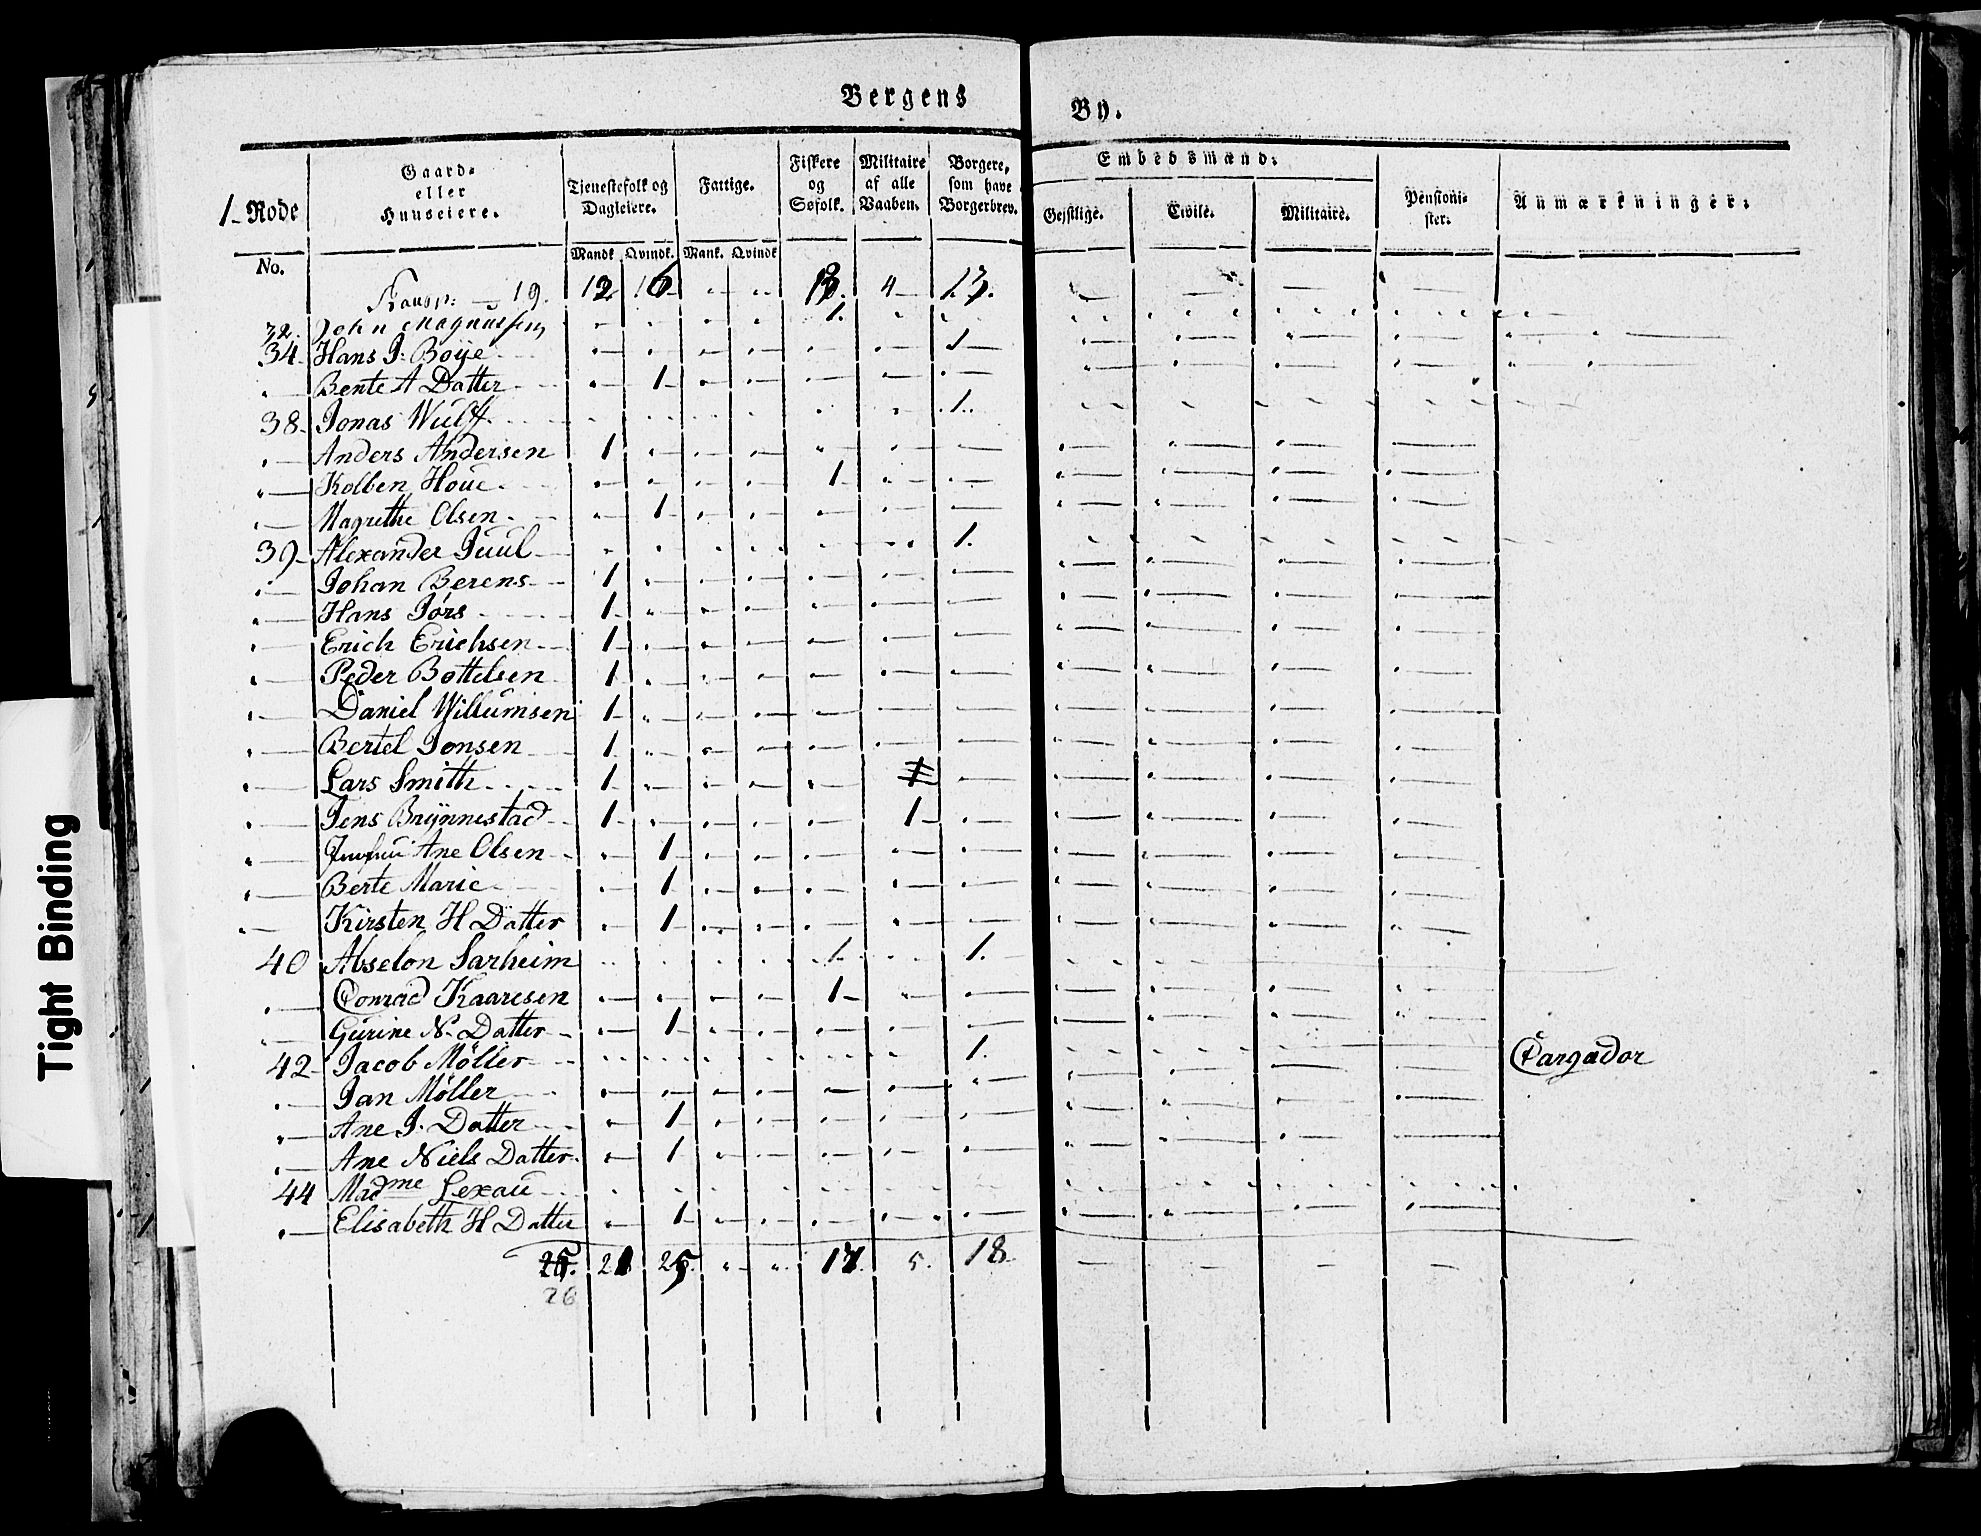 Bergens By.
1 - Rode
No.
Gaard- eller Huuseiere.
Tjenestefolk og Dagleiere.
Mandk Qvindk.
Fattige.
Mank. Qvindk
Fiskere og Søfolk.
Militaire af alle Vaaben.
Borgere, som have Borgerbrev.
Embedsmænd.
Gejstlige. Civile. Militaire.
Pensionister.
Anmærkninger.
Transp: — 19. 12 16 " " 13. 4 — 17.
32. John Magnussen 1.
34. Hans J. Boÿe 1
" Bente A Datter 1
38. Jonas Wulff 1.
" Anders Andersen 1
" Kolben Houe 1
" Magrethe Olsen 1
39 Alexander Juul 1.
" Johan Berens 1
" Hans Jörs 1
" Erich Erichsen 1
" Peder Bottelsen 1
" Daniel Willumsen 1
" Bertel Jonsen 1
" Lars Smith 1
" Jens Brÿnnestad 1 1
" Jomfrui Ane Olsen 1
" Berte Marie 1
" Kirsten H Datter 1
40 Abselon Sarheim 1. 1.
" Conrad Kaaresen 1
" Gurine N. Datter 1
42 Jacob Möller 1. Cargador
" Jan Möller
" Ane J. Datter 1
" Ane Niels Datter 1
44 Madme Lexau
" Elisabeth H Datter 1
25. 21 25. " " 17. 5. 18
26
Tight Binding